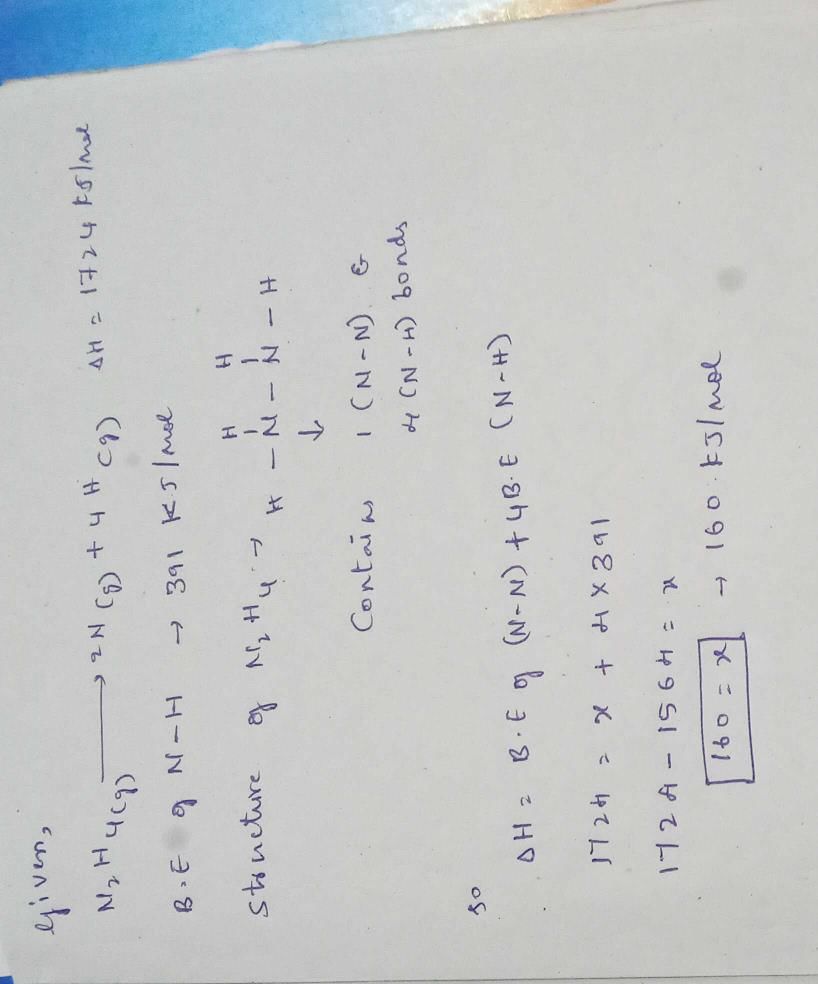 Given,
N2H4(g) → 2N(g) + 4H(g) ΔH = 1724 kJ/mol
B.E of N-H → 391 KJ/mol
Structure of N2H4 → H - N - N - H
H H
↓
Contains 1 (N-N) &
4 (N-H) bonds
so ΔH = B.E of (N-N) + 4B.E (N-H)
1724 = x + 4 x 391
1724 - 1564 = x
160 = x → 160 kJ/mol